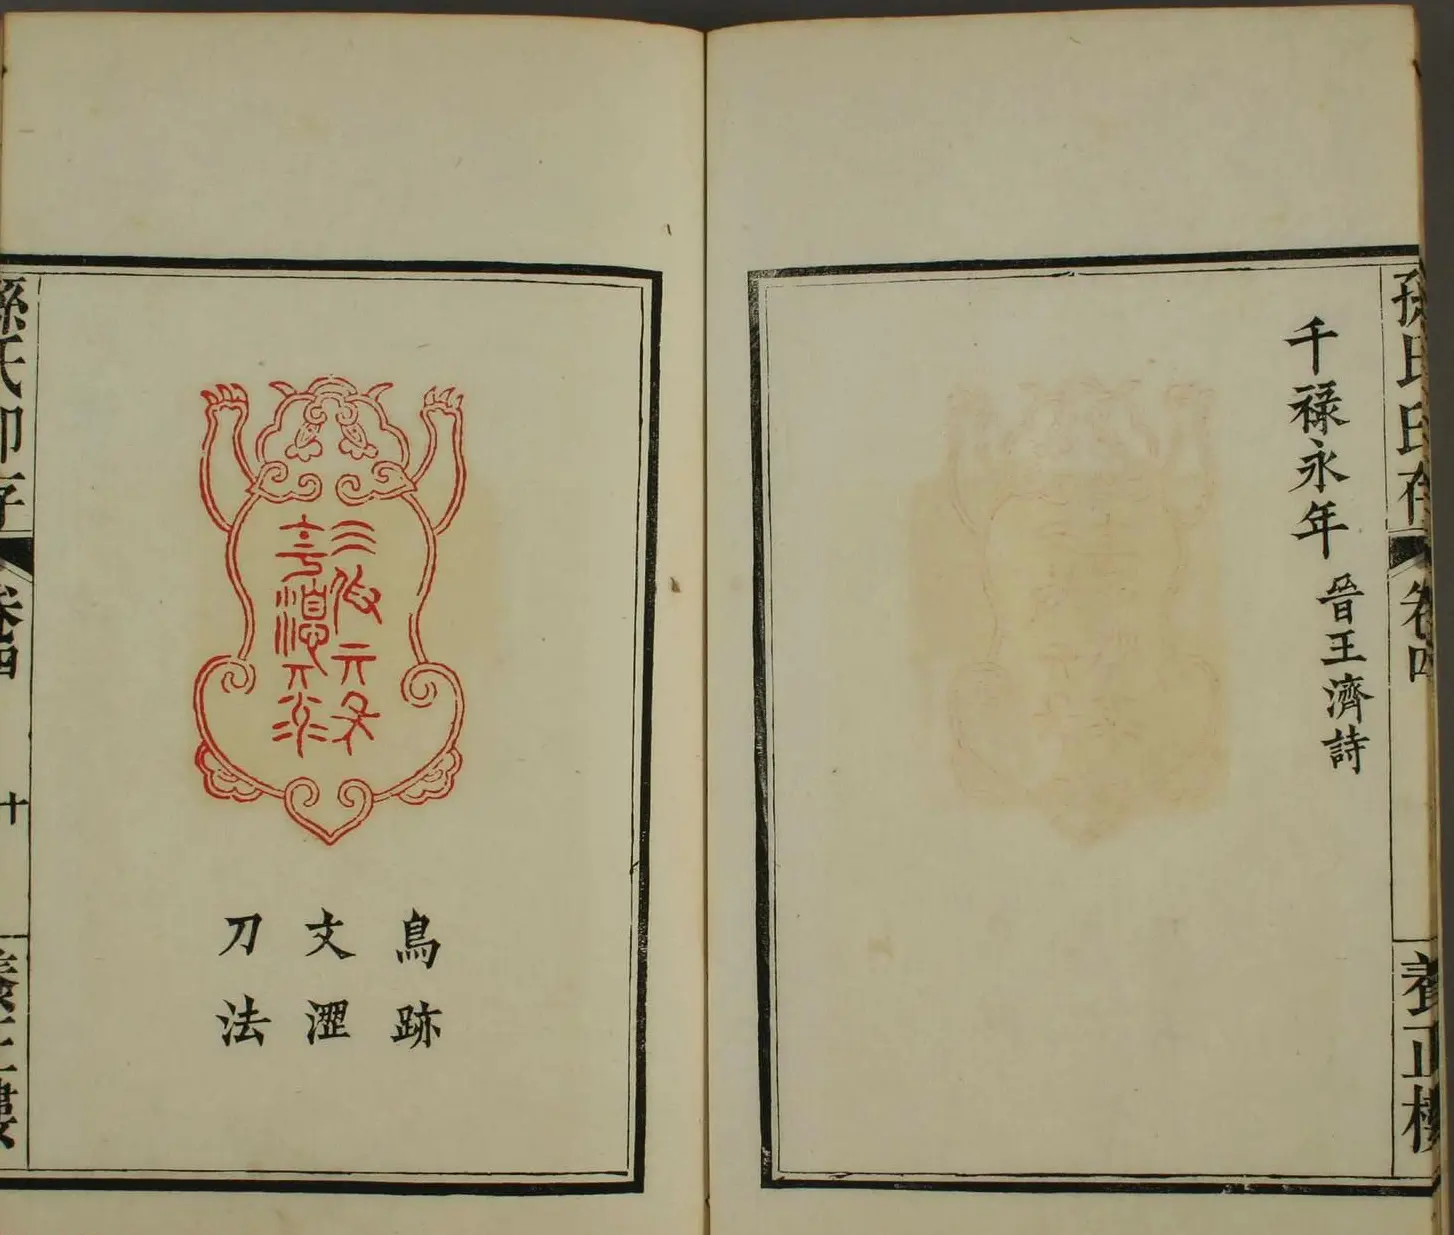 孫氏印存
卷四
養正樓
千祿永年
晉王濟詩
鳥跡
文澀
刀法
孫氏印存
卷四
十
養正樓